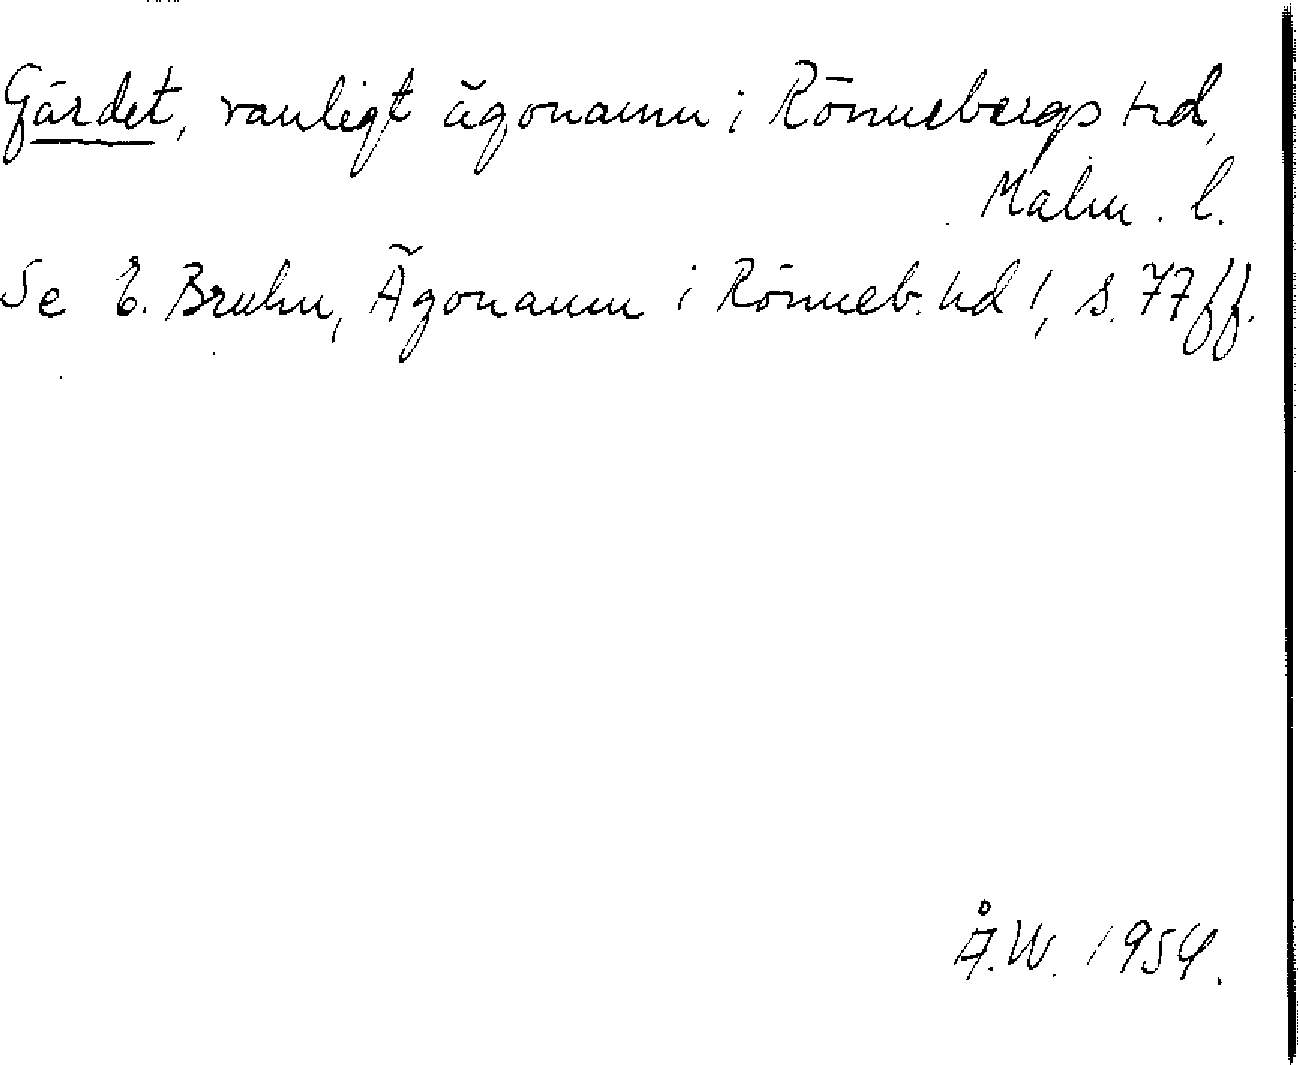 Gärdet, vanligt ägonamn i Rönnebergs hd,
Malm. l.
Se E. Bruhn, Ägonamn i Rönneb. hd 1, s. 77 ff.
Å.W. 1954.